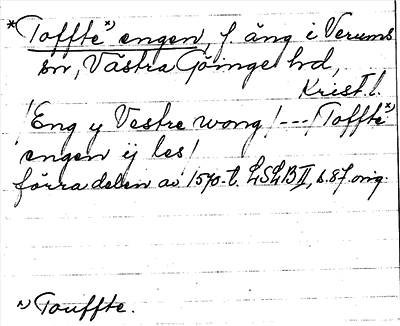 *Toffte˟⁾ engen, f. äng i Verums
sn, Västra Göinge hd,
Krist. l.
/Eng y Vestre wong/ --- /Toffte˟⁾
engen ij les/
förra delen av 1570-t. LSLB II, s. 87. orig.
~ Touffte.